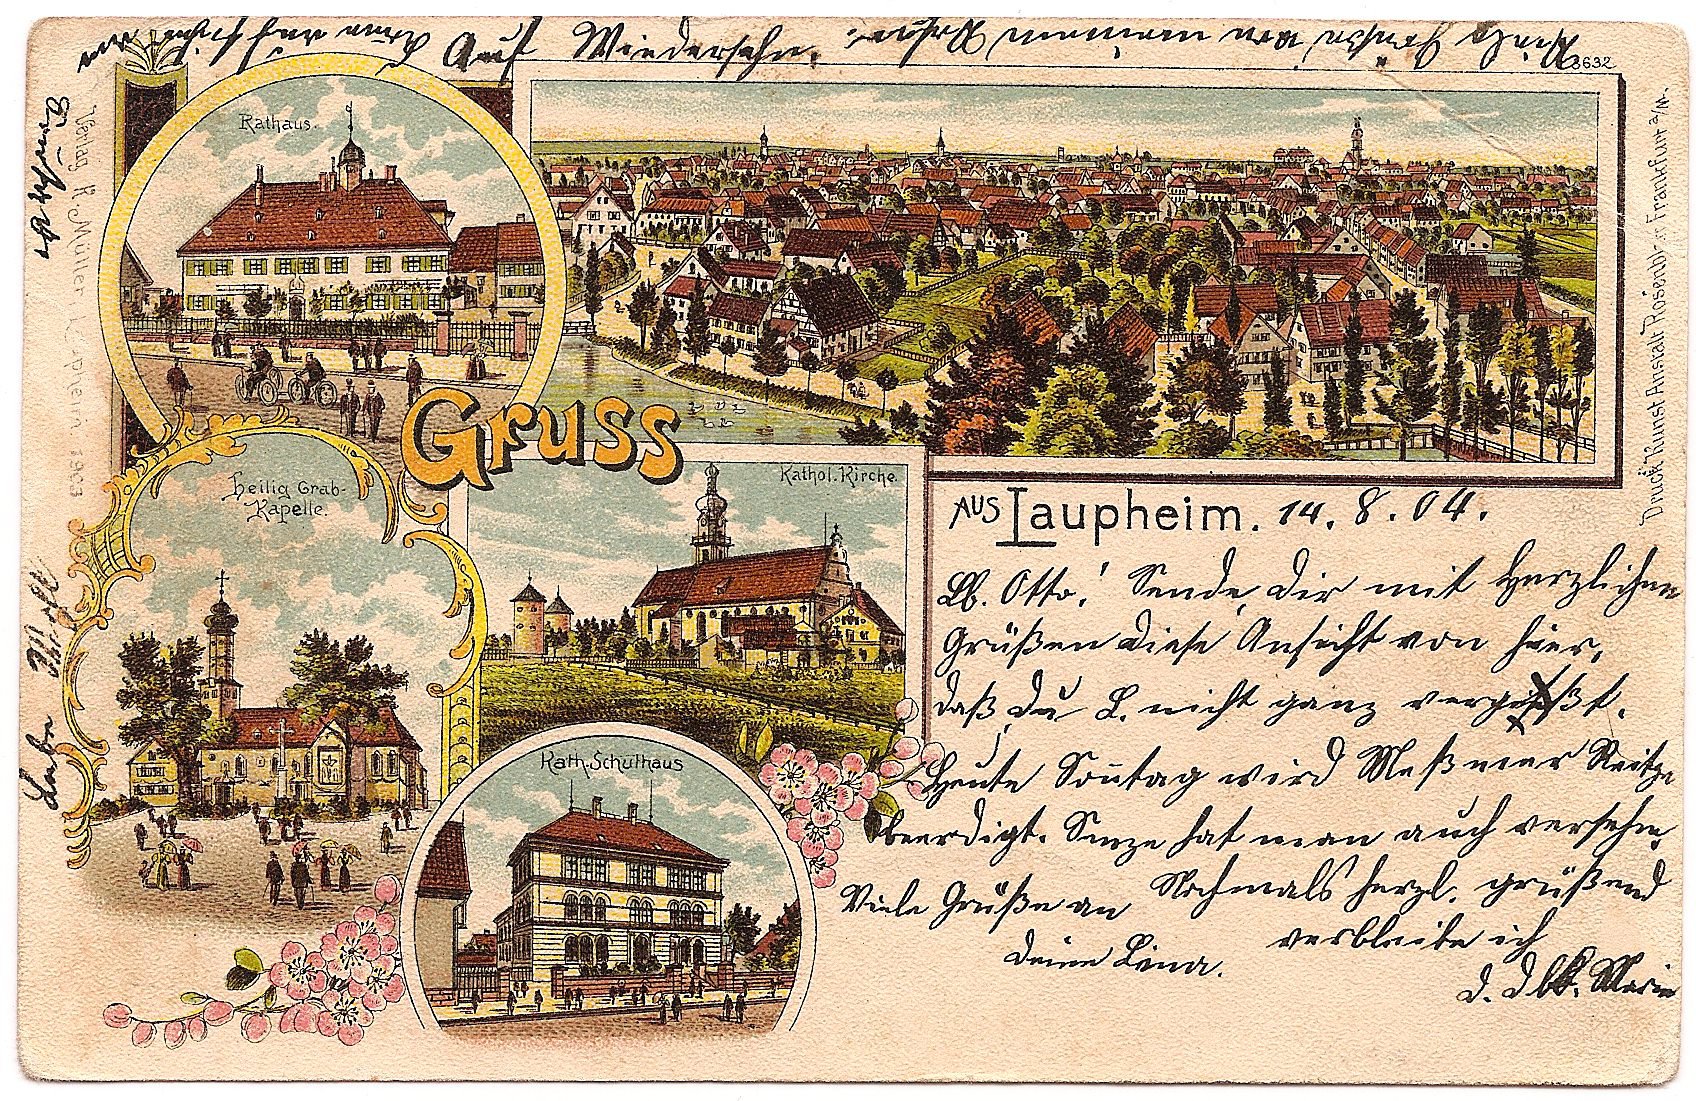 Auf Wiedersehn.
8632
Rathaus.
Gruss
aus Laupheim. 14. 8. 04.
Heilig Grab-
Kapelle.
Kathol. Kirche.
Kath. Schulhaus
Lb. Otto! Sende Dir mit herzlichen
Grüßen diese Ansicht von hier,
daß Du L. nicht ganz vergißt.
Heute Sonntag wird Meßmer
beerdigt. hat man auch versehn.
Nochmals herzl. grüßend
verbleibe ich
d. Marie
Viele Grüße an
deine Lina.
Viele Grüße von meinem
Leben
Verlag K. Müller 1903
Druck Kunst Anstalt Rosenbl Frankfurt a/M.